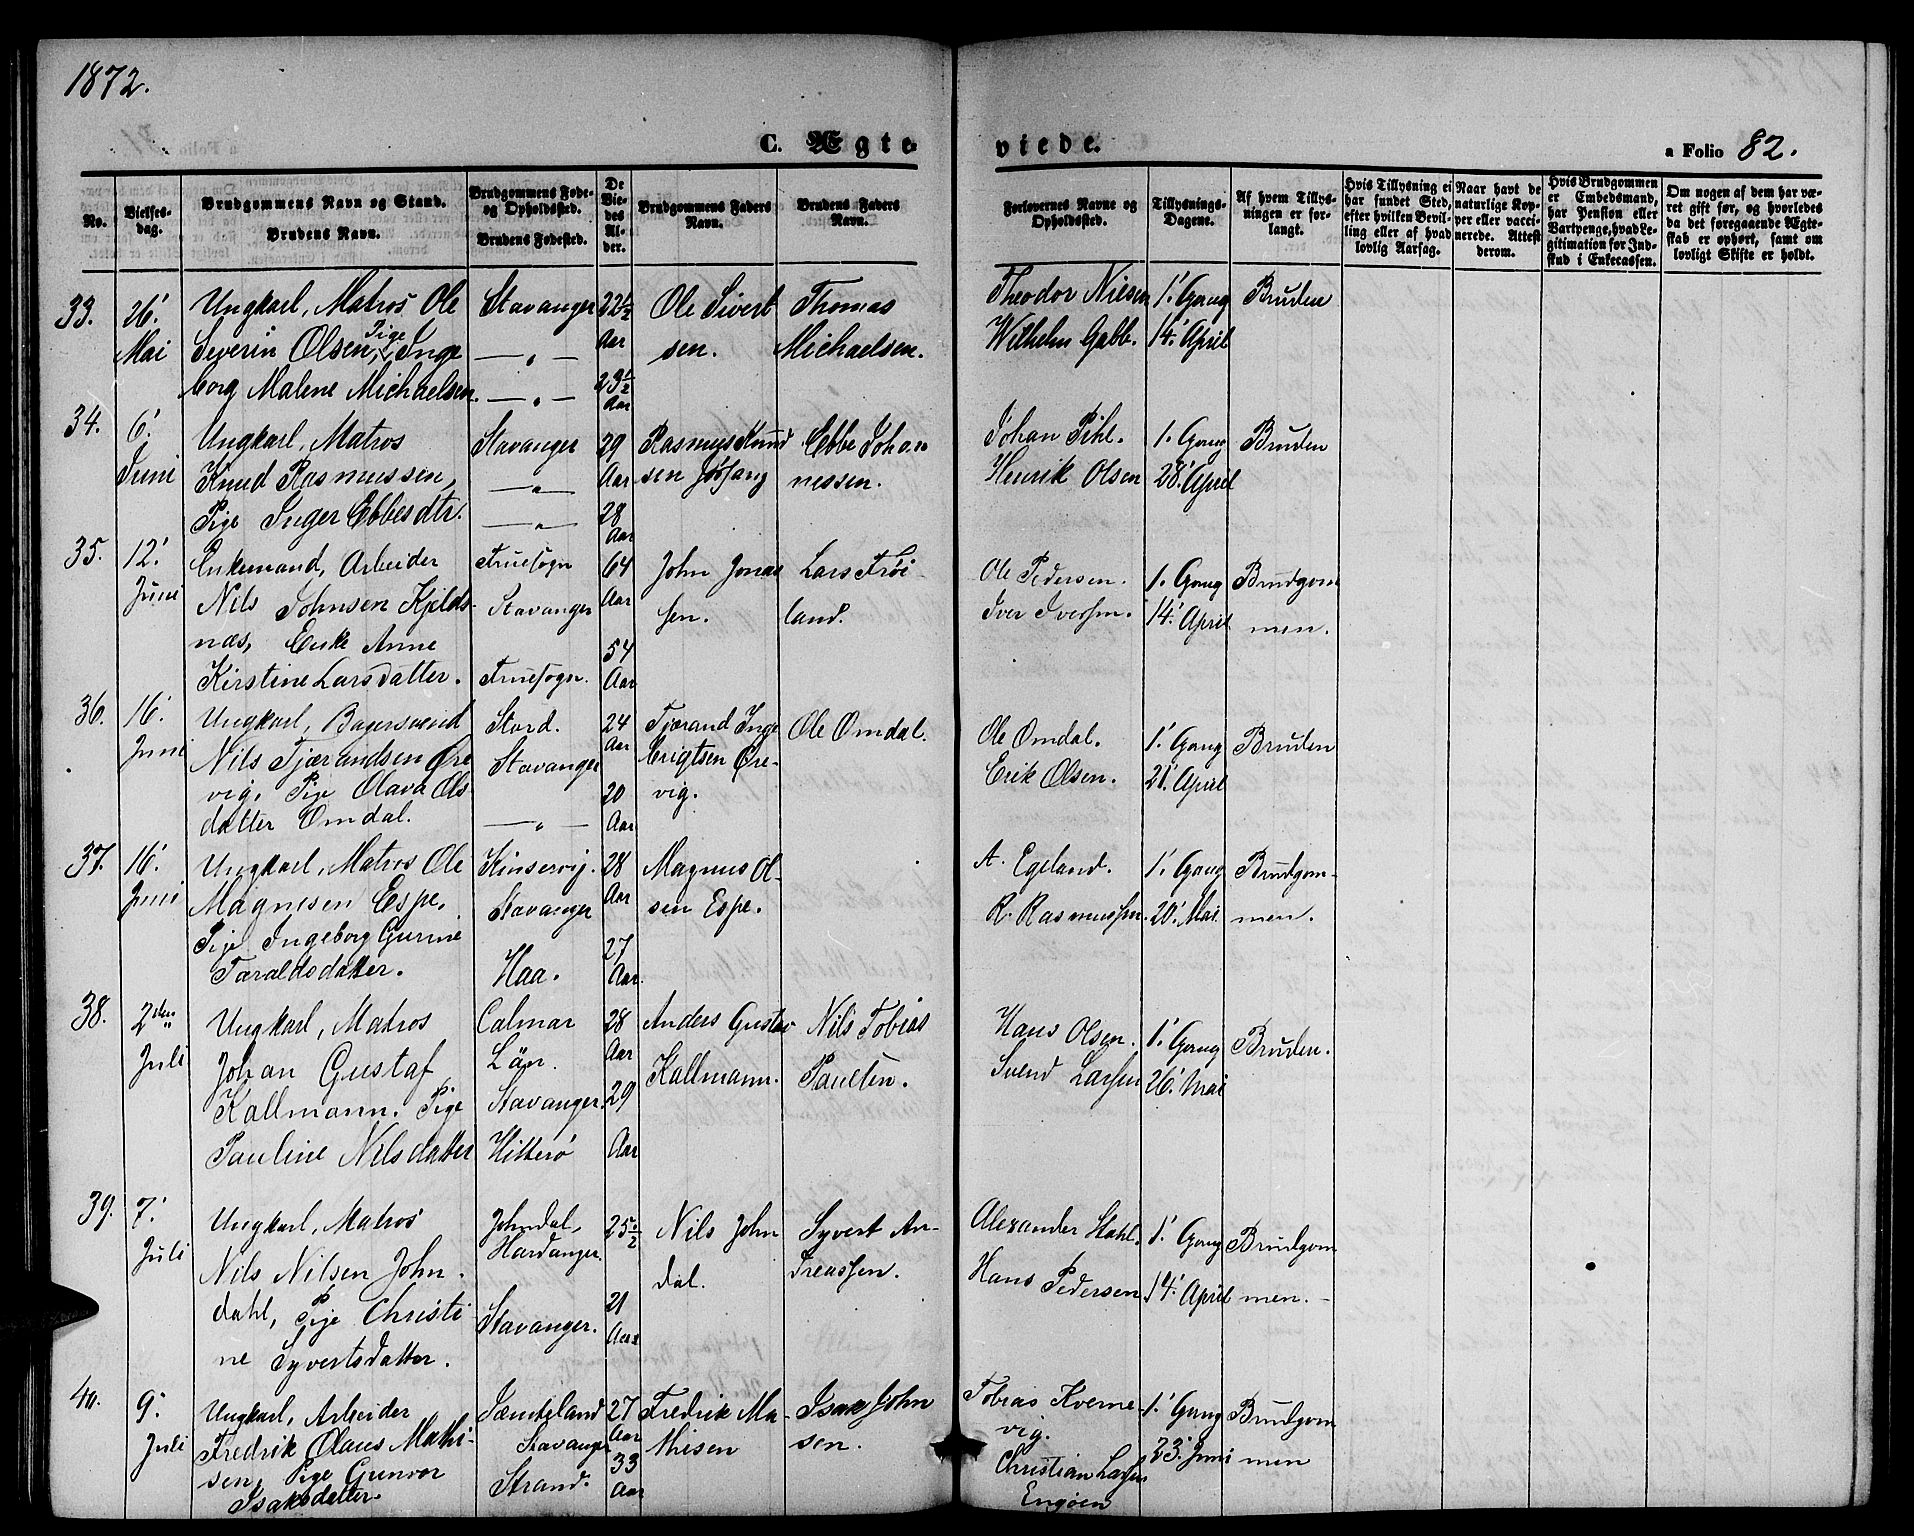 1872.
C. Ægte-
viede.
a Folio 82.
No.
Vielses-
dag.
Brudgommens Navn og Stand.
Brudens Navn.
Brudgommens Føde-
og Opholdssted.
Brudens Fødested.
De
Vie-
des
Al-
der.
Brudgommens Faders
Navn.
Brudens Faders
Navn.
Forlovernes Navne og
Opholdssted.
Tillysnings-
Dagene.
Af hvem Tillys-
ningen er for-
langt.
Hvis Tillysning ei
har fundet Sted,
efter hvilken Bevil-
ling eller af hvad
lovlig Aarsag.
Naar havt de
naturlige Kop-
per eller vacci-
nerede. Attest
derom.
Hvis Brudgommen
er Embedsmand,
har Pension eller
Vartpenge, hvad Le-
gitimation for Ind-
skud i Enkecassen.
Om nogen af dem har væ-
ret gift før, og hvorledes
da det foregaaende Ægte-
skab er ophørt, samt om
lovligt Skifte er holdt.
33.
26'
Mai
Ungkarl, Matros Ole
Severin Olsen, Pige Inge
borg Malene Michaelsen.
Stavanger
— „ —
— „ —
22½
Aar
23½
Aar
Ole Sivert
sen.
Thomas
Michaelsen.
Theodor Nielsen
Wilhelm Gabb.
1' Gang
14' April
Bruden
34.
6'
Juni
Ungkarl, Matros
Knud Rasmussen,
Pige Inger Ebbesdtr.
Stavanger
— „ —
— „ —
29
Aar
28
Aar
Rasmus Knud
sen Jøsfang
Ebbe Johan
nessen.
Johan Pihl.
Henrik Olsen
1' Gang
28' April
Bruden
35.
12'
Juni
Enkemand, Arbeider
Nils Johnsen Kjelds-
næs, Enke Anne
Kirstine Larsdatter.
Fruesogn
Stavanger
Fruesogn.
64
Aar
54
Aar
John Jonas
sen.
Lars Frøi
land.
Ole Pedersen.
Iver Iversen.
1' Gang
14' April
Brudgom
men.
36.
16'
Juni
Ungkarl, Bagersvend
Nils Tjærandsen Øre
vig. Pige Olava Ols
datter Omdal.
Stord.
Stavanger
— „ —
24
Aar
20
Aar
Tjærand Inge
brigtsen Øre-
vig.
Ole Omdal.
Ole Omdal.
Erik Olsen.
1' Gang
21' April
Bruden
37.
16'
Juni
Ungkarl, Matros Ole
Magnesen Espe,
Pige Ingeborg Gurine
Taraldsdatter.
Kinservig.
Stavanger
Haa.
28
Aar
27
Aar
Magnus Ol-
sen Espe.
A. Egeland.
R. Rasmussen.
1' Gang
20' Mai
Brudgom-
men.
38.
2den
Juli
Ungkarl, Matros
Johan Gustaf
Kallmann. Pige
Pauline Nilsdatter
Calmar
Län.
Stavanger.
Hitterø
28
Aar
29
Aar
Anders Gustav
Kallmann.
Nils Tobias
Paulsen.
Hans Olsen.
Svend Larsen
1' Gang
26' Mai
Bruden.
39.
7'
Juli
Ungkarl, Matros
Nils Nilsen John
dahl, Pige Christi
ne Syvertsdatter.
Johndal,
Hardanger.
Stavanger.
25½
21
Aar
Nils John
dal.
Syvert An-
dreassen.
Alexander Stahl.
Hans Pedersen
1' Gang
14' April
Brudgom
men.
40.
9'
Juli
Ungkarl, Arbeider
Fredrik Olaus Mathi-
sen, Pige Gunvor
Isaksdatter.
Jæmteland
Stavanger
Strand.
27
Aar
33
Aar
Fredrik Ma-
thisen
Isak John
sen.
Tobias Kverne-
vig.
Christian Larsen
Engøen
1' Gang
23' Juni
Brudgom
men